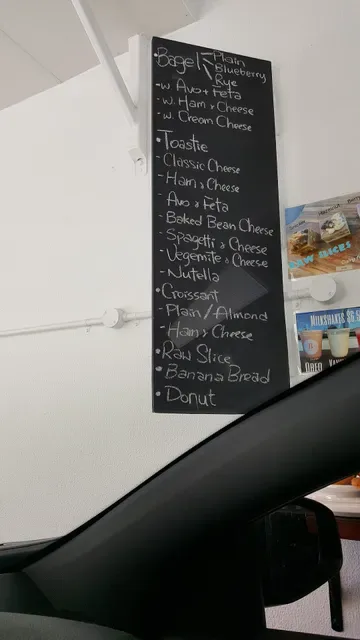 • Bagel - Plain
Blueberry
Rye
- w. Avo + Feta
- w. Ham + Cheese
- w. Cream Cheese
• Toastie
- Classic Cheese
- Ham & Cheese
- Avo & Feta
- Baked Bean Cheese
- Spagetti & Cheese
- Vegemite & Cheese
- Nutella
• Croissant
- Plain/Almond
- Ham & Cheese
• Raw Slice
• Banana Bread
• Donut
RAW SLICES
MILKSHAKES $6.5
OREO